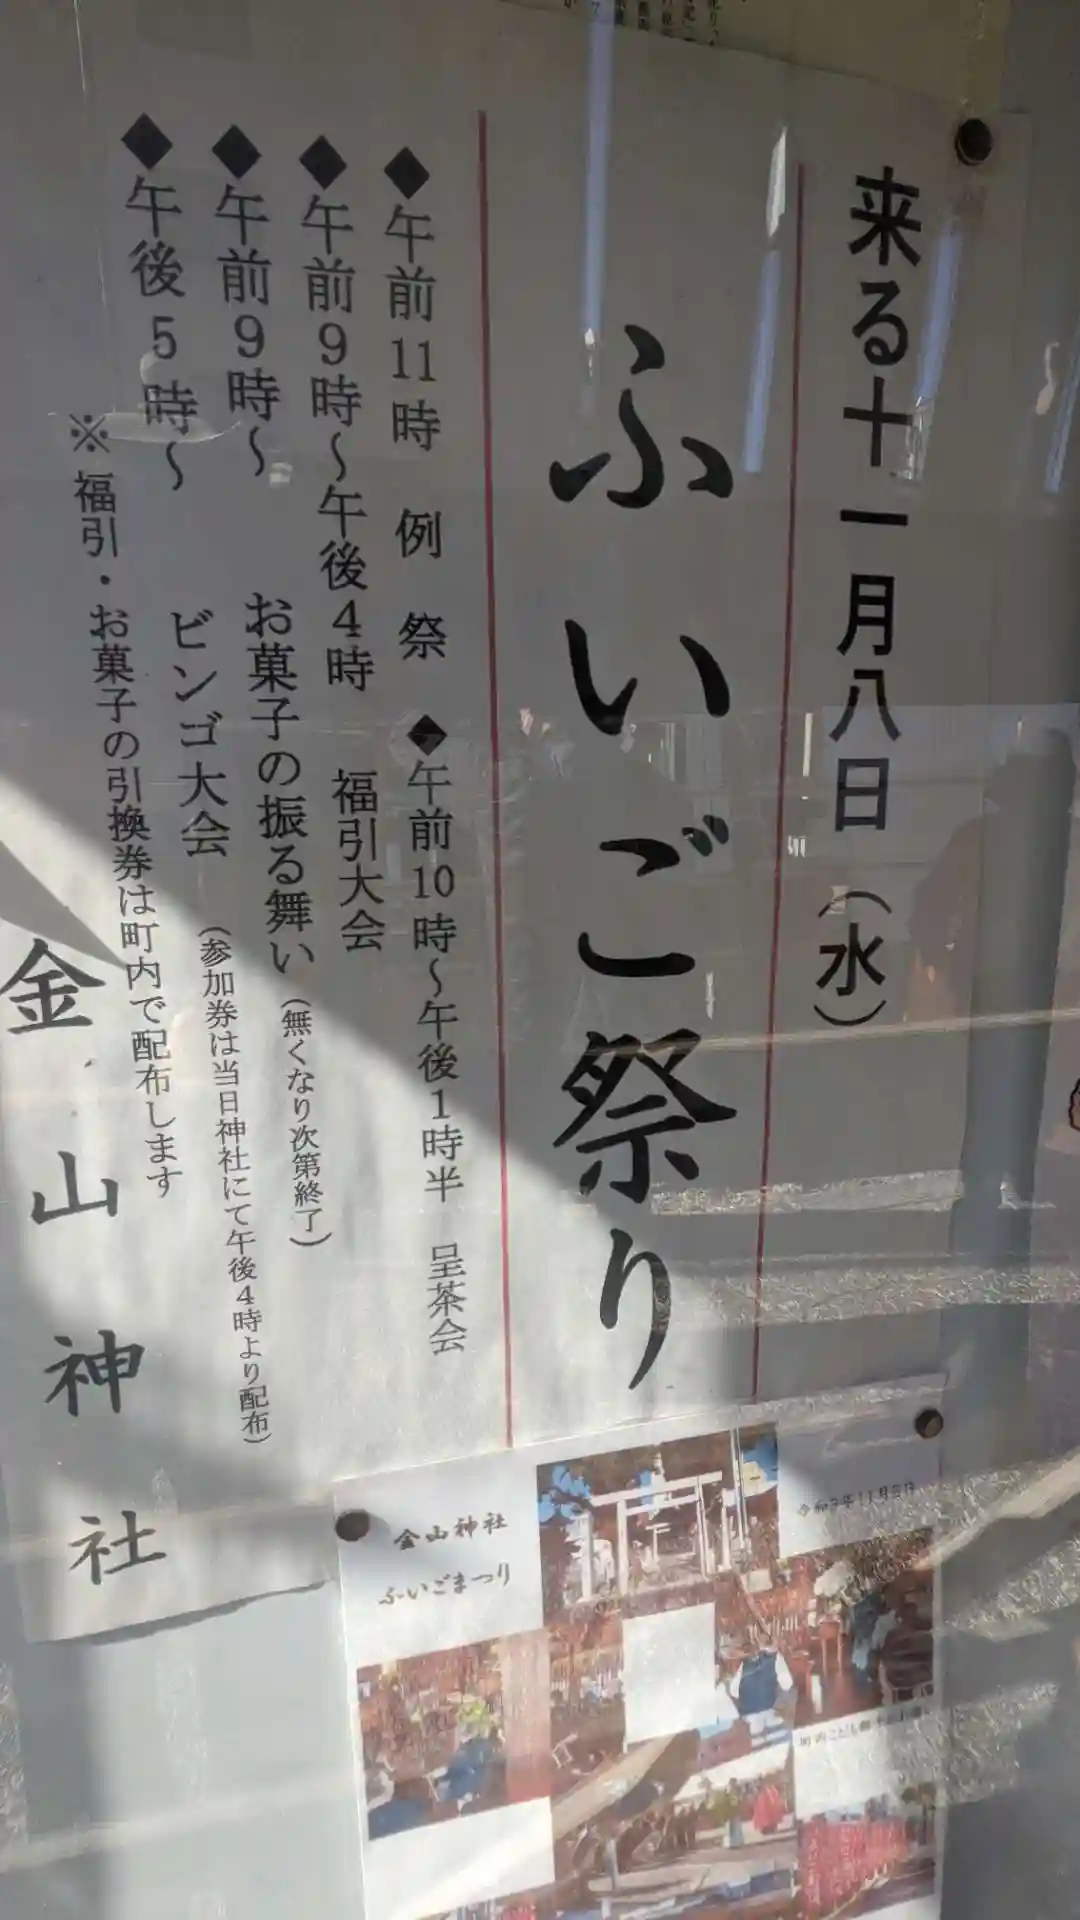 来る十一月八日（水）
ふいご祭り
◆午前11時 例 祭 ◆午前10時～午後1時半 呈茶会
◆午前9時～午後4時 福引大会
◆午前9時～ お菓子の振る舞い（無くなり次第終了）
◆午後5時～ ビンゴ大会（参加券は当日神社にて午後4時より配布）
※福引・お菓子の引換券は町内で配布します
金山神社
金山神社
ふいごまつり